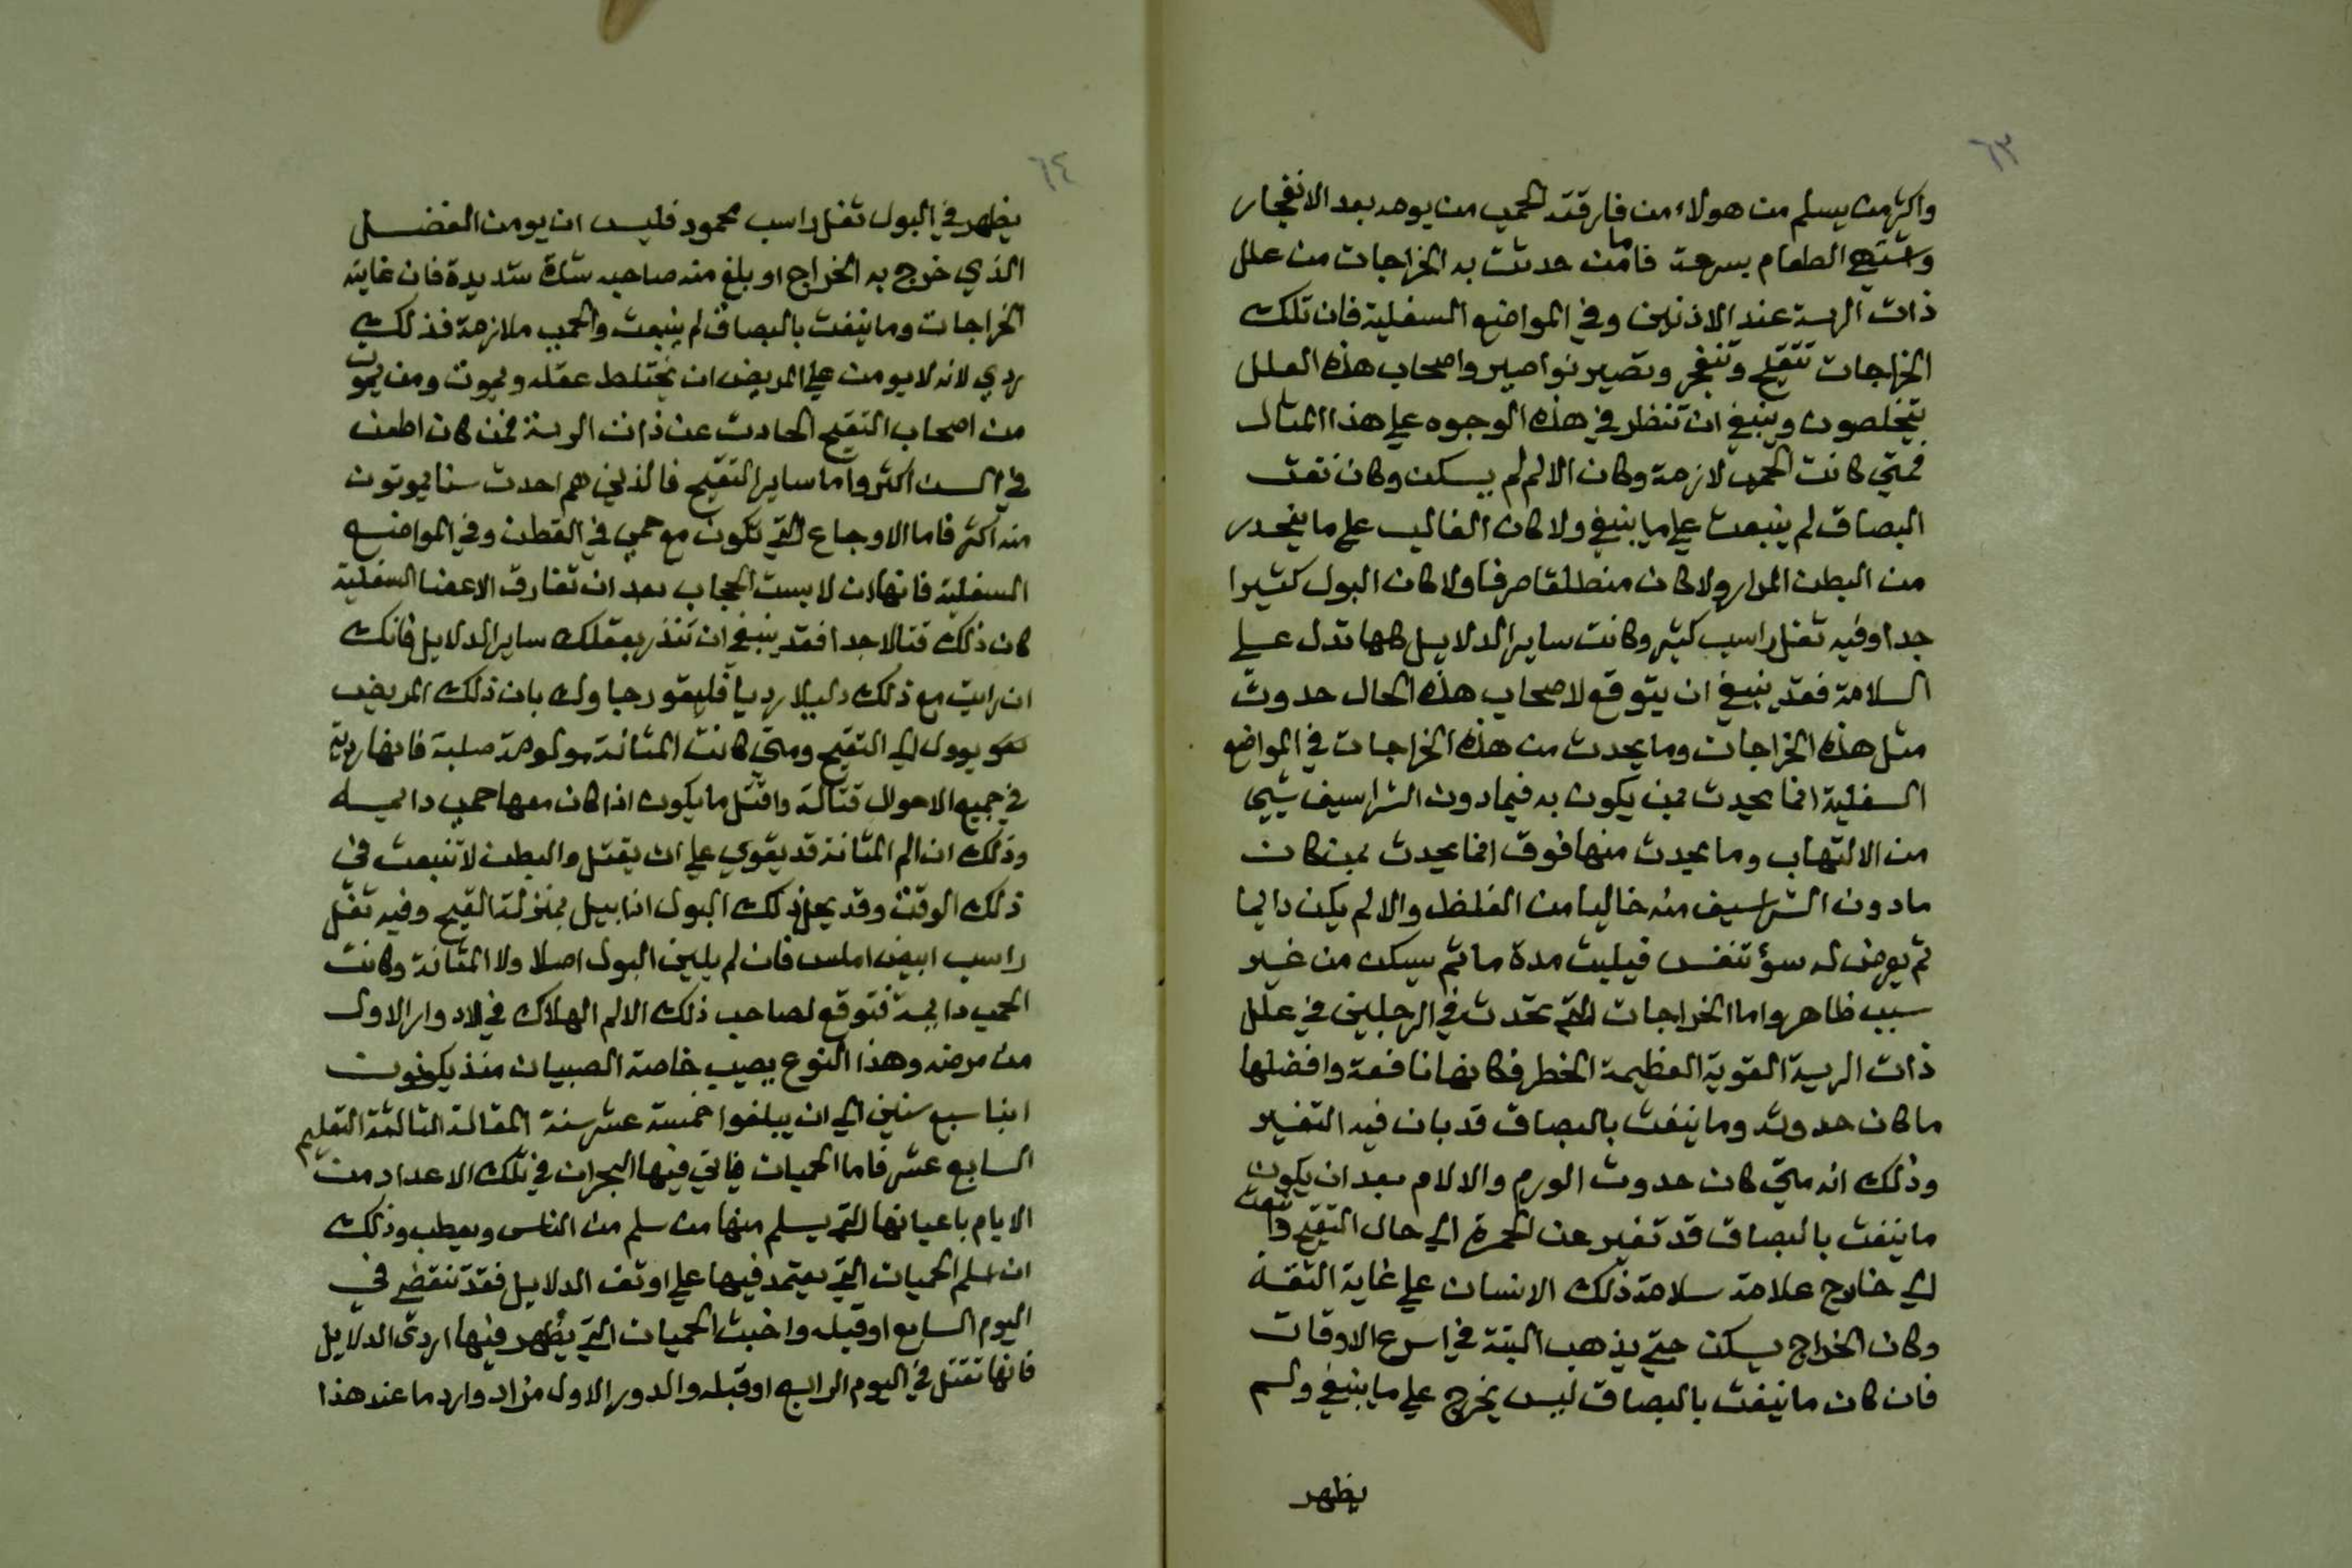 ٦٣
واكثر من يسلم من هولاء من فارقته الحمي من يومه بعد الانفجار
واشتهي الطعام بسرعة فاما من حدثت به الخراجات من علل
ذات الرية عند الاذنين وفي المواضع السفلية فان تلك
الخراجات تتقيح وتنفجر وتصير نواصير واصحاب هذه العلل
يتخلصون وينبغي ان تنظر في هذه الوجوه علي هذا المثال
فمتي كانت الحمي لازمة وكان الالم لم يسكن وكان نفث
البصاق لم ينبعث علي ما ينبغي ولا كان الغالب علي ما ينحدر
من البطن المرار ولا كان منطلقا صرفا ولا كان البول كثيرا
جدا وفيه ثفل راسب كثير وكانت ساير الدلايل كلها تدل علي
السلامة فقد ينبغي ان يتوقع لاصحاب هذه الحال حدوث
مثل هذه الخراجات وما يحدث من هذه الخراجات في المواضع
السفلية انما يحدث بمن يكون به فيما دون الشراسيف شيي
من الالتهاب وما يحدث منها فوق انما يحدث بمن كان
ما دون الشراسيف منه خاليا من الغلظ والالم يكن دايما
ثم يعرض له سؤ تنفس فيلبث مدة ما ثم يسكن من غير
سبب ظاهر واما الخراجات التي تحدث في الرجلين في علل
ذات الرية القوية العظيمة الخطر فكانها نافعة وافضلها
ما كان حدوثه وما ينفث بالبصاق قد بان فيه التغير
وذلك انه متي كان حدوث الورم والالام بعد ان يكون
ما ينفث بالبصاق قد تغير عن الحمرة الي حال التقيح وانبعث
الي خارج علامة سلامة ذلك الانسان علي غاية الثقة
وكان الخراج يسكن حتي يذهب البتة في اسرع الاوقات
فان كان ما ينفث بالبصاق ليس يخرج علي ما ينبغي ولم
يظهر
٦٤
يظهر في البول ثفل راسب محمود فليس ان يومن المفضل
الذي خرج به الخراج او بلغ منه صاحبه شدة شديدة فان غاية
الخراجات وما ينفث بالبصاق لم ينبعث والحمي ملازمة فذلك
ردي لانه لا يومن علي المريض ان يختلط عقله ويموت ومن يموت
من اصحاب التقيح الحادث عن ذات الرية فمن كان اطعن
في السن اكثر واما ساير التقيح فالذين هم احدث سنا يموتون
منه اكثر فاما الاوجاع التي تكون مع حمي في القطن وفي المواضع
السفلية فانها ان لابست الحجاب بعد ان تفارق الاعضا السفلية
كان ذلك قتالا جدا فقد ينبغي ان تنذر بعقلك ساير الدلايل فانك
ان رايت مع ذلك دليلا رديا فليقو رجاوك بان ذلك المريض
هو يوول الي التقيح ومتي كانت المثانة مولومة صلبة فانها ردية
في جميع الاحوال قتالة واقتل ما يكون اذا كان معها حمي دايمه
وذلك ان الم المثانة قد يقوي علي ان يقتل والبطن لا تنبعث في
ذلك الوقت وقد يحل ذلك البول اذا بيل بمنزلة القيح وفيه ثفل
راسب ابيض املس فان لم يلين البول اصلا ولا المثانة وكانت
الحمي دايمة فتوقع لصاحب ذلك الالم الهلاك في الادوار الاول
من مرضه وهذا النوع يصيب خاصة الصبيان منذ يكونون
ابنا سبع سنين الي ان يبلغوا خمسة عشر سنة المقالة الثالثة التعليم
السابع عشر فاما الحميات فياتي فيها البحران في تلك الاعداد من
الايام باعيانها التي يسلم منها من سلم من الناس ويعطب وذلك
ان اسلم الحميات التي يعتمد فيها علي اوثق الدلايل فقد تنقضي في
اليوم السابع او قبله واخبث الحميات التي يظهر فيها اردئ الدلايل
فانها تقتل في اليوم الرابع او قبله والدور الاول من ادوارد ما عند هذا